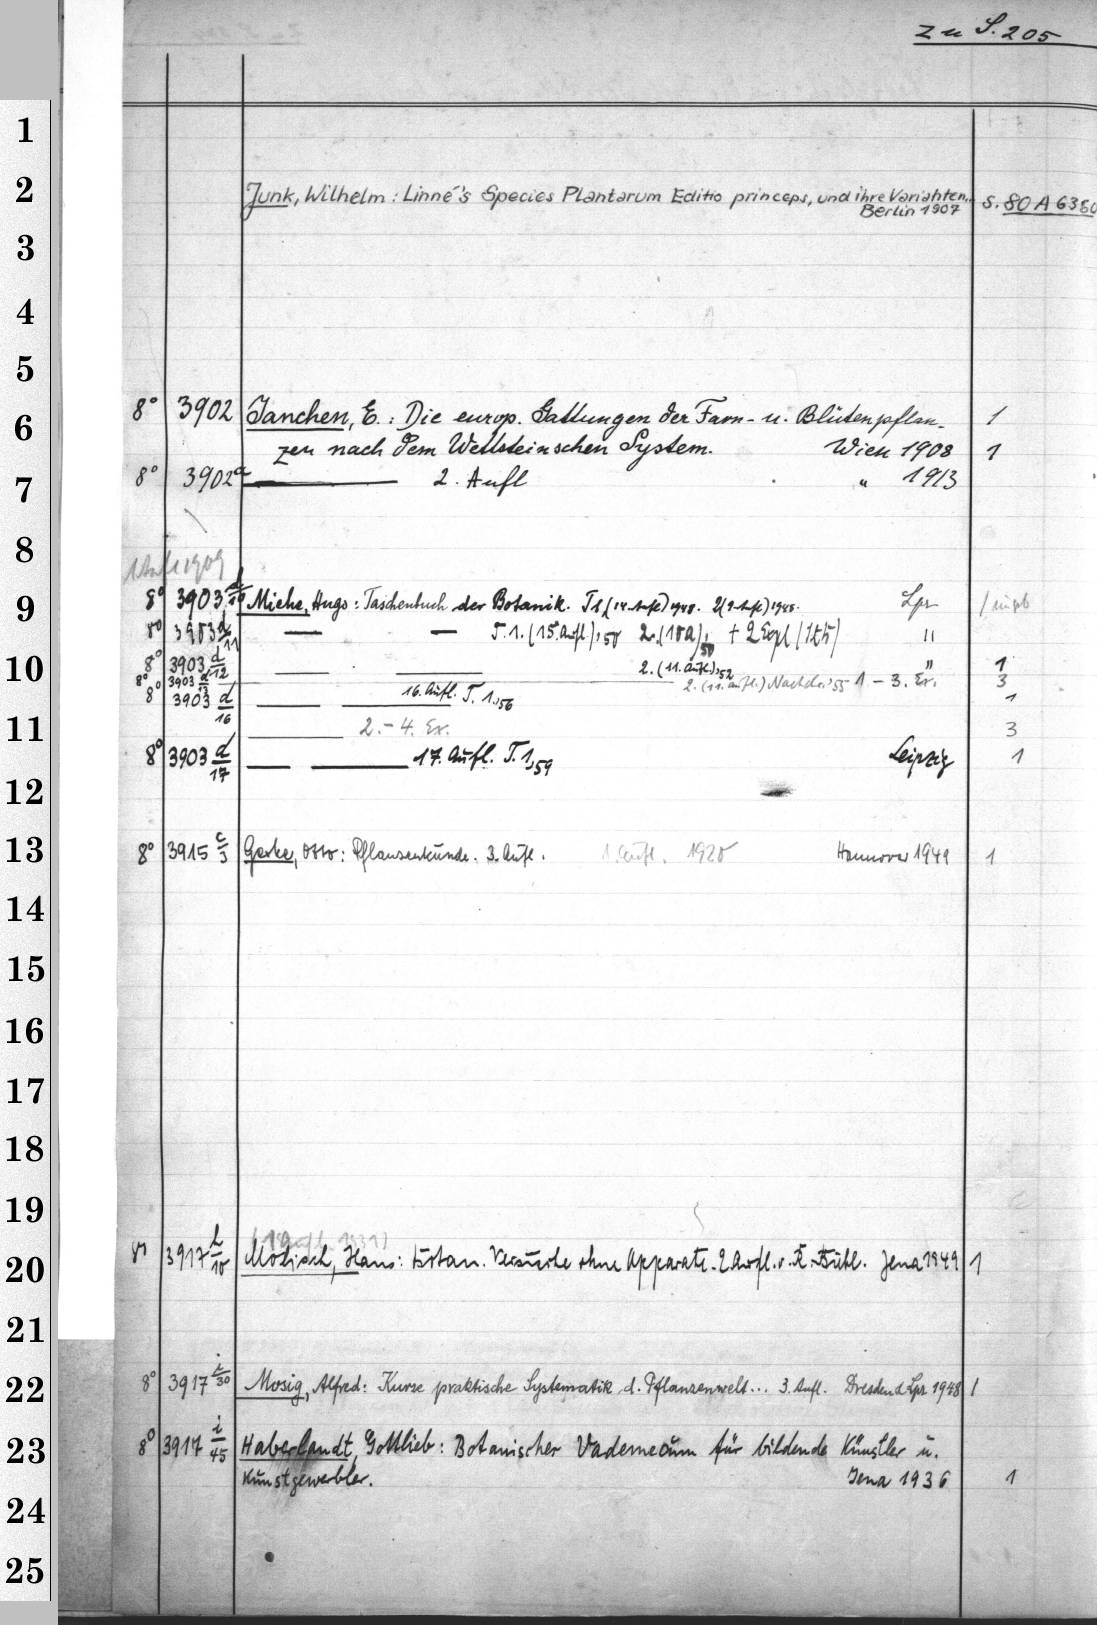 zu S. 205
Junk, Wilhelm: Linné's Species Plantarum Editio princeps, und ihre Varianten..
Berlin 1907 s. 80 A 6350
8° 3902 Janchen, E.: Die europ. Gattungen der Farn- u. Blütenpflan- 1
zen nach dem Wettsteinschen System. Wien 1908 1
8° 3902a 2. Aufl " 1913
1909
8° 3903 d/10 Miehe, Hugo: Taschenbuch der Botanik. T1 (14. Aufl) 1948. 2 (9. Aufl) 1948. Lpz
8° 3903 d/11 — — T. 1. (15. Aufl), 50 2. (10 A) 50 + 2 Expl "
8° 3903 d/12 2. (11. Aufl.), 52 " 1
8° 3903 d/13 2. (11. Aufl.) Nachdr. 55 1 - 3. Ex. 3
8° 3903 d/16 16. Aufl. T. 1, 56 1
2. - 4. Ex. 3
8° 3903 d/17 17. Aufl. T. 1, 59 Leipzig 1
8° 3915 c/3 Gerke, Otto: Pflanzenkunde. 3. Aufl. 1. Aufl. 1920 Hannover 1949 1
8° 3917 h/10 Molisch, Hans: Botan. Versuche ohne Apparate. 2. Aufl. v. Jena 1949 1
8° 3917 i/30 Mosig, Alfred: Kurze praktische Systematik d. Pflanzenwelt... 3. Aufl. Dresden & Lpz 1948 1
8° 3917 i/45 Haberlandt, Gottlieb: Botanischer Vademecum für bildende Künstler u.
Kunstgewerbler. Jena 1936 1
1
2
3
4
5
6
7
8
9
10
11
12
13
14
15
16
17
18
19
20
21
22
23
24
25